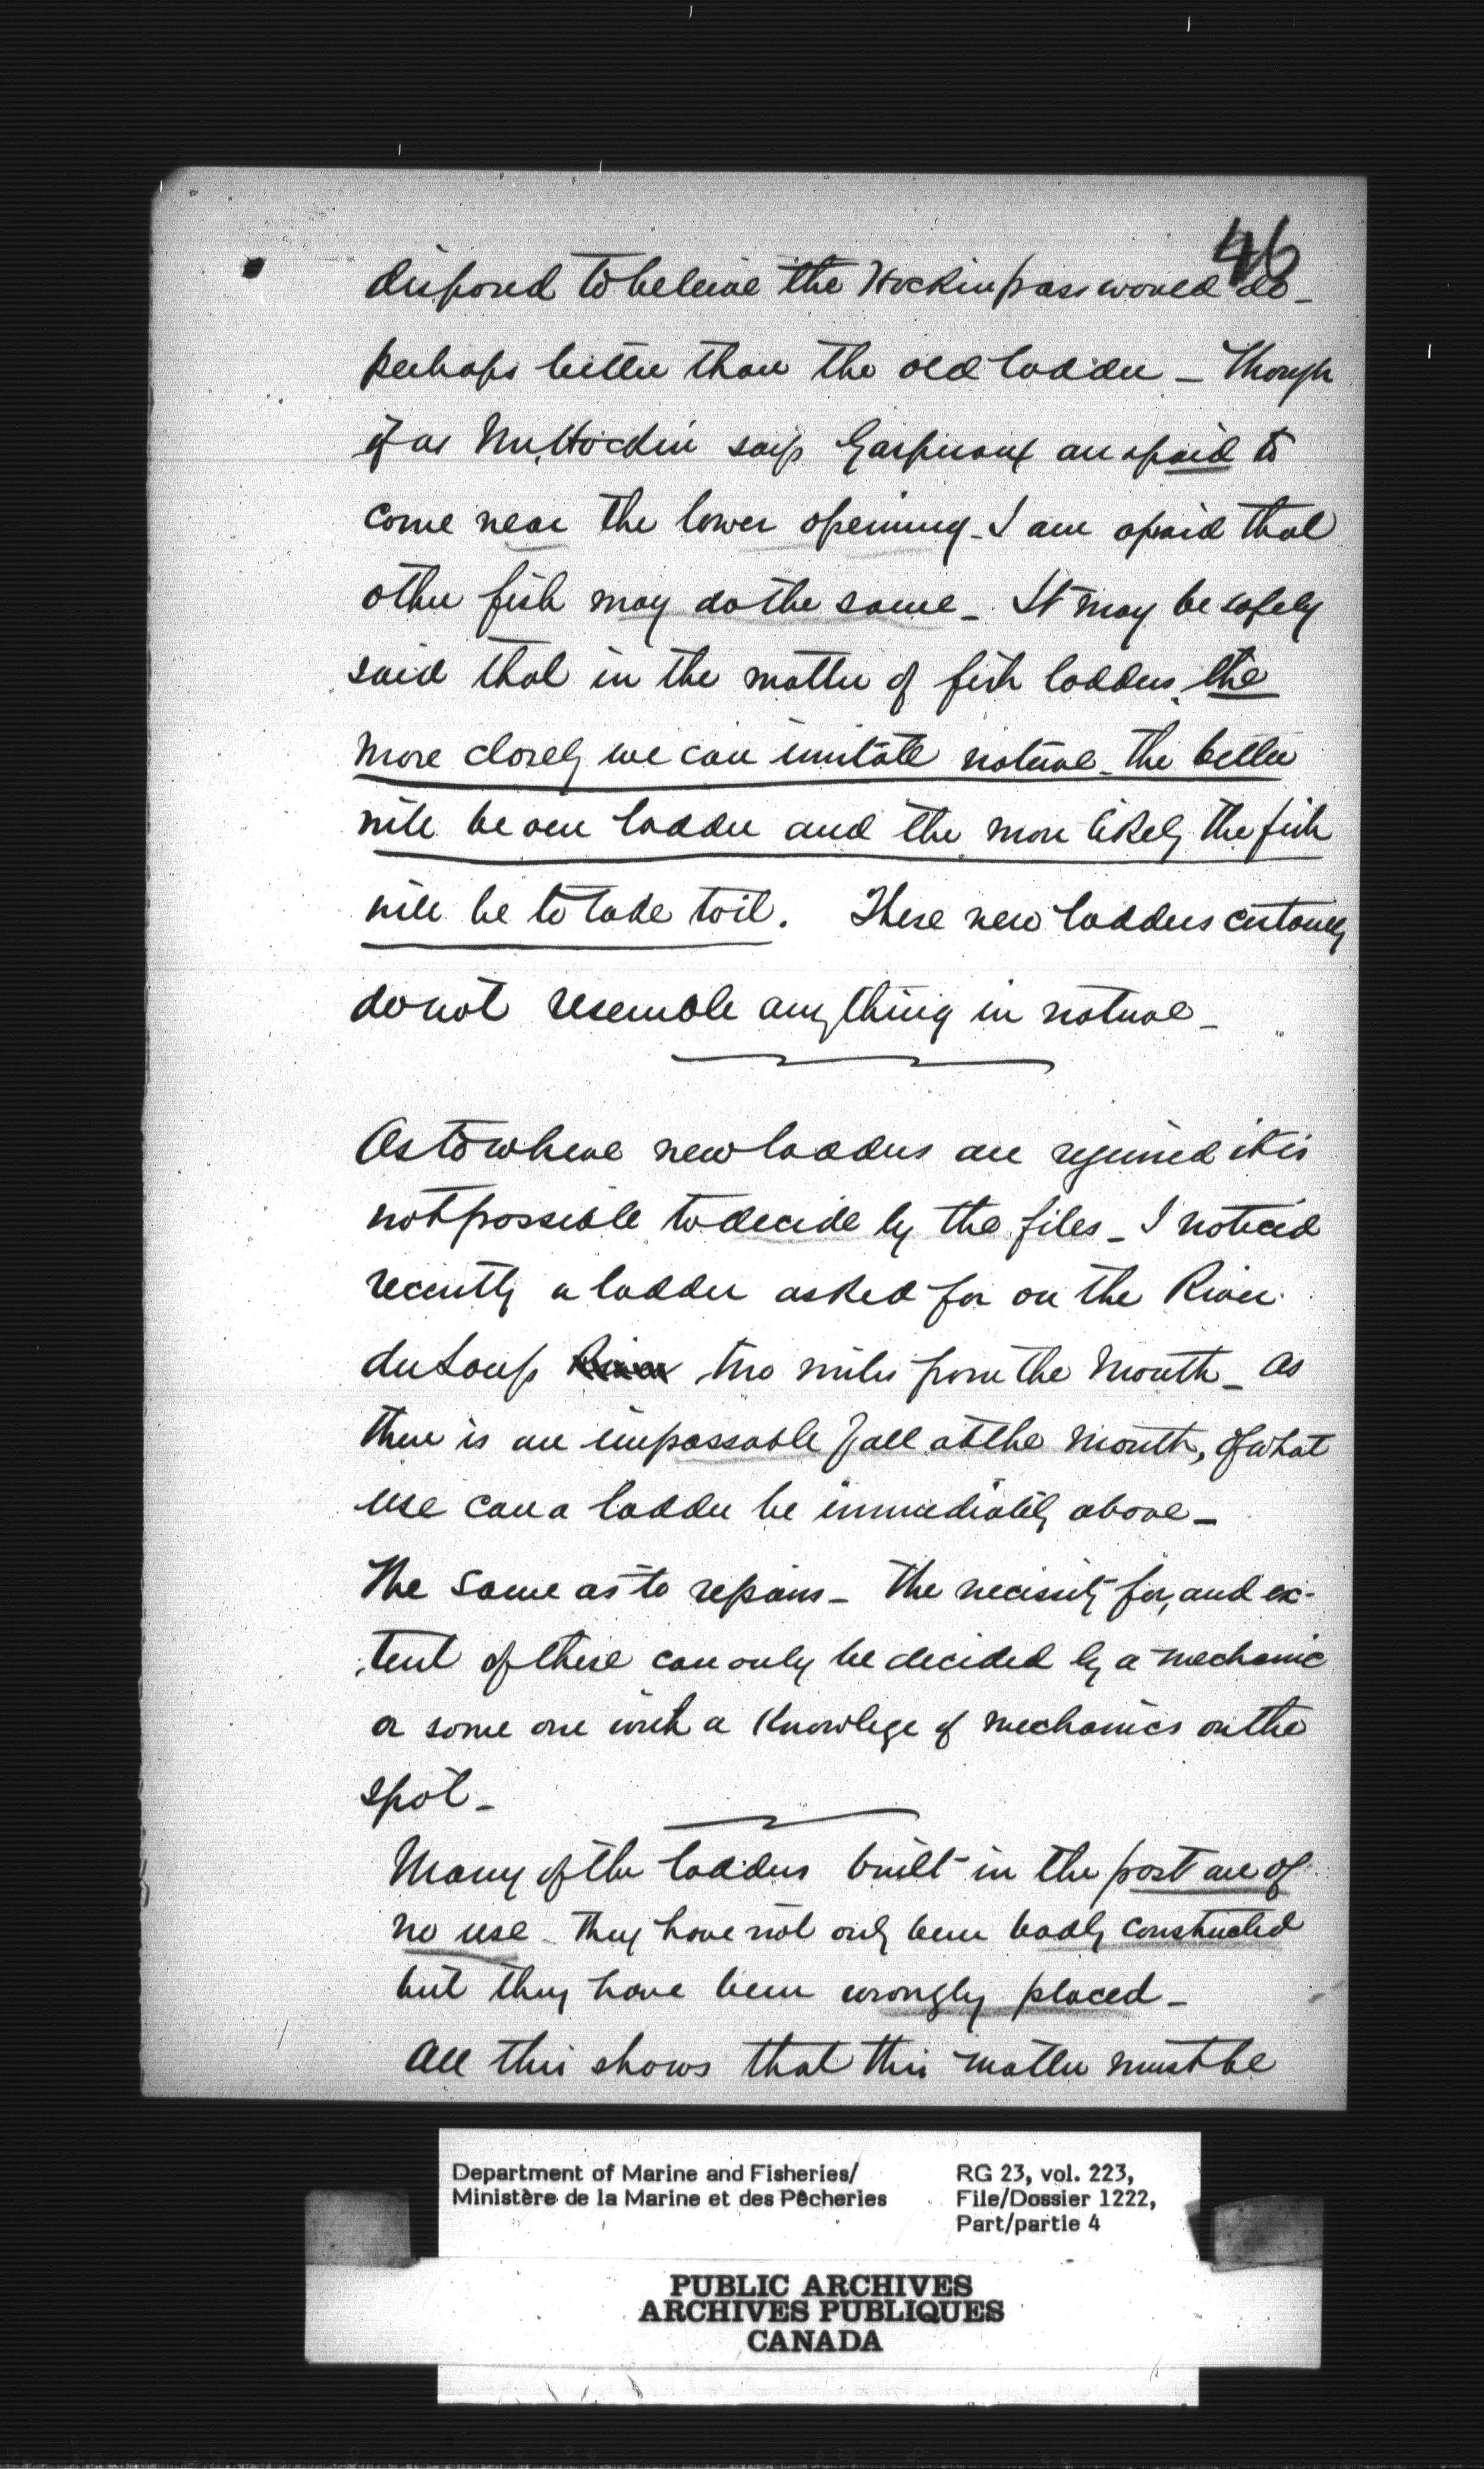 46
disposed to beleive the Hockin pass would do -
perhaps better than the old ladder - Though
if as Mr. Hockin says Gaspereaux are afraid to
come near the lower opening - I am afraid that
other fish may do the same - It may be safely
said that in the matter of fish ladders, the
more closely we can imitate nature - the better
will be our ladder and the more likely the fish
will be to take to it. These new ladders certainly
do not resemble anything in nature -
As to where new ladders are required it is
not possible to decide by the files - I noticed
recently a ladder asked for on the River
du Loup River two miles from the mouth - as
there is an impassable fall at the mouth, of what
use can a ladder be immediately above -
The same as to repairs - The necissity for, and ex-
tent of these can only be decided by a mechanic
or some one with a Knowlege of mechanics on the
spot -
Many of the ladders built in the past are of
no use - they have not only been badly constructed
but they have been wrongly placed -
All this shows that this matter must be
Department of Marine and Fisheries/ RG 23, vol. 223,
Ministère de la Marine et des Pêcheries File/Dossier 1222,
Part/partie 4
PUBLIC ARCHIVES
ARCHIVES PUBLIQUES
CANADA